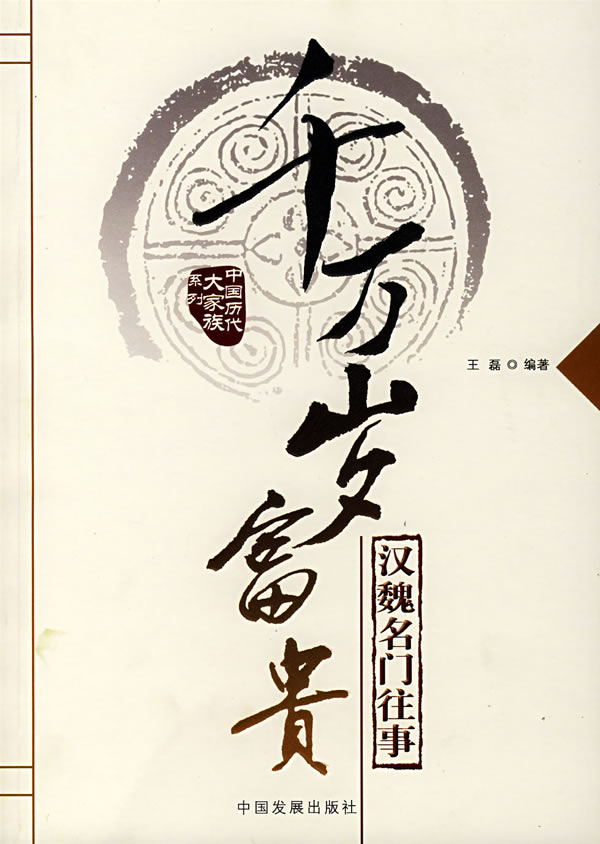 千万岁富贵
中国历代
大家族
系列
王磊◎编著
汉魏名门往事
中国发展出版社